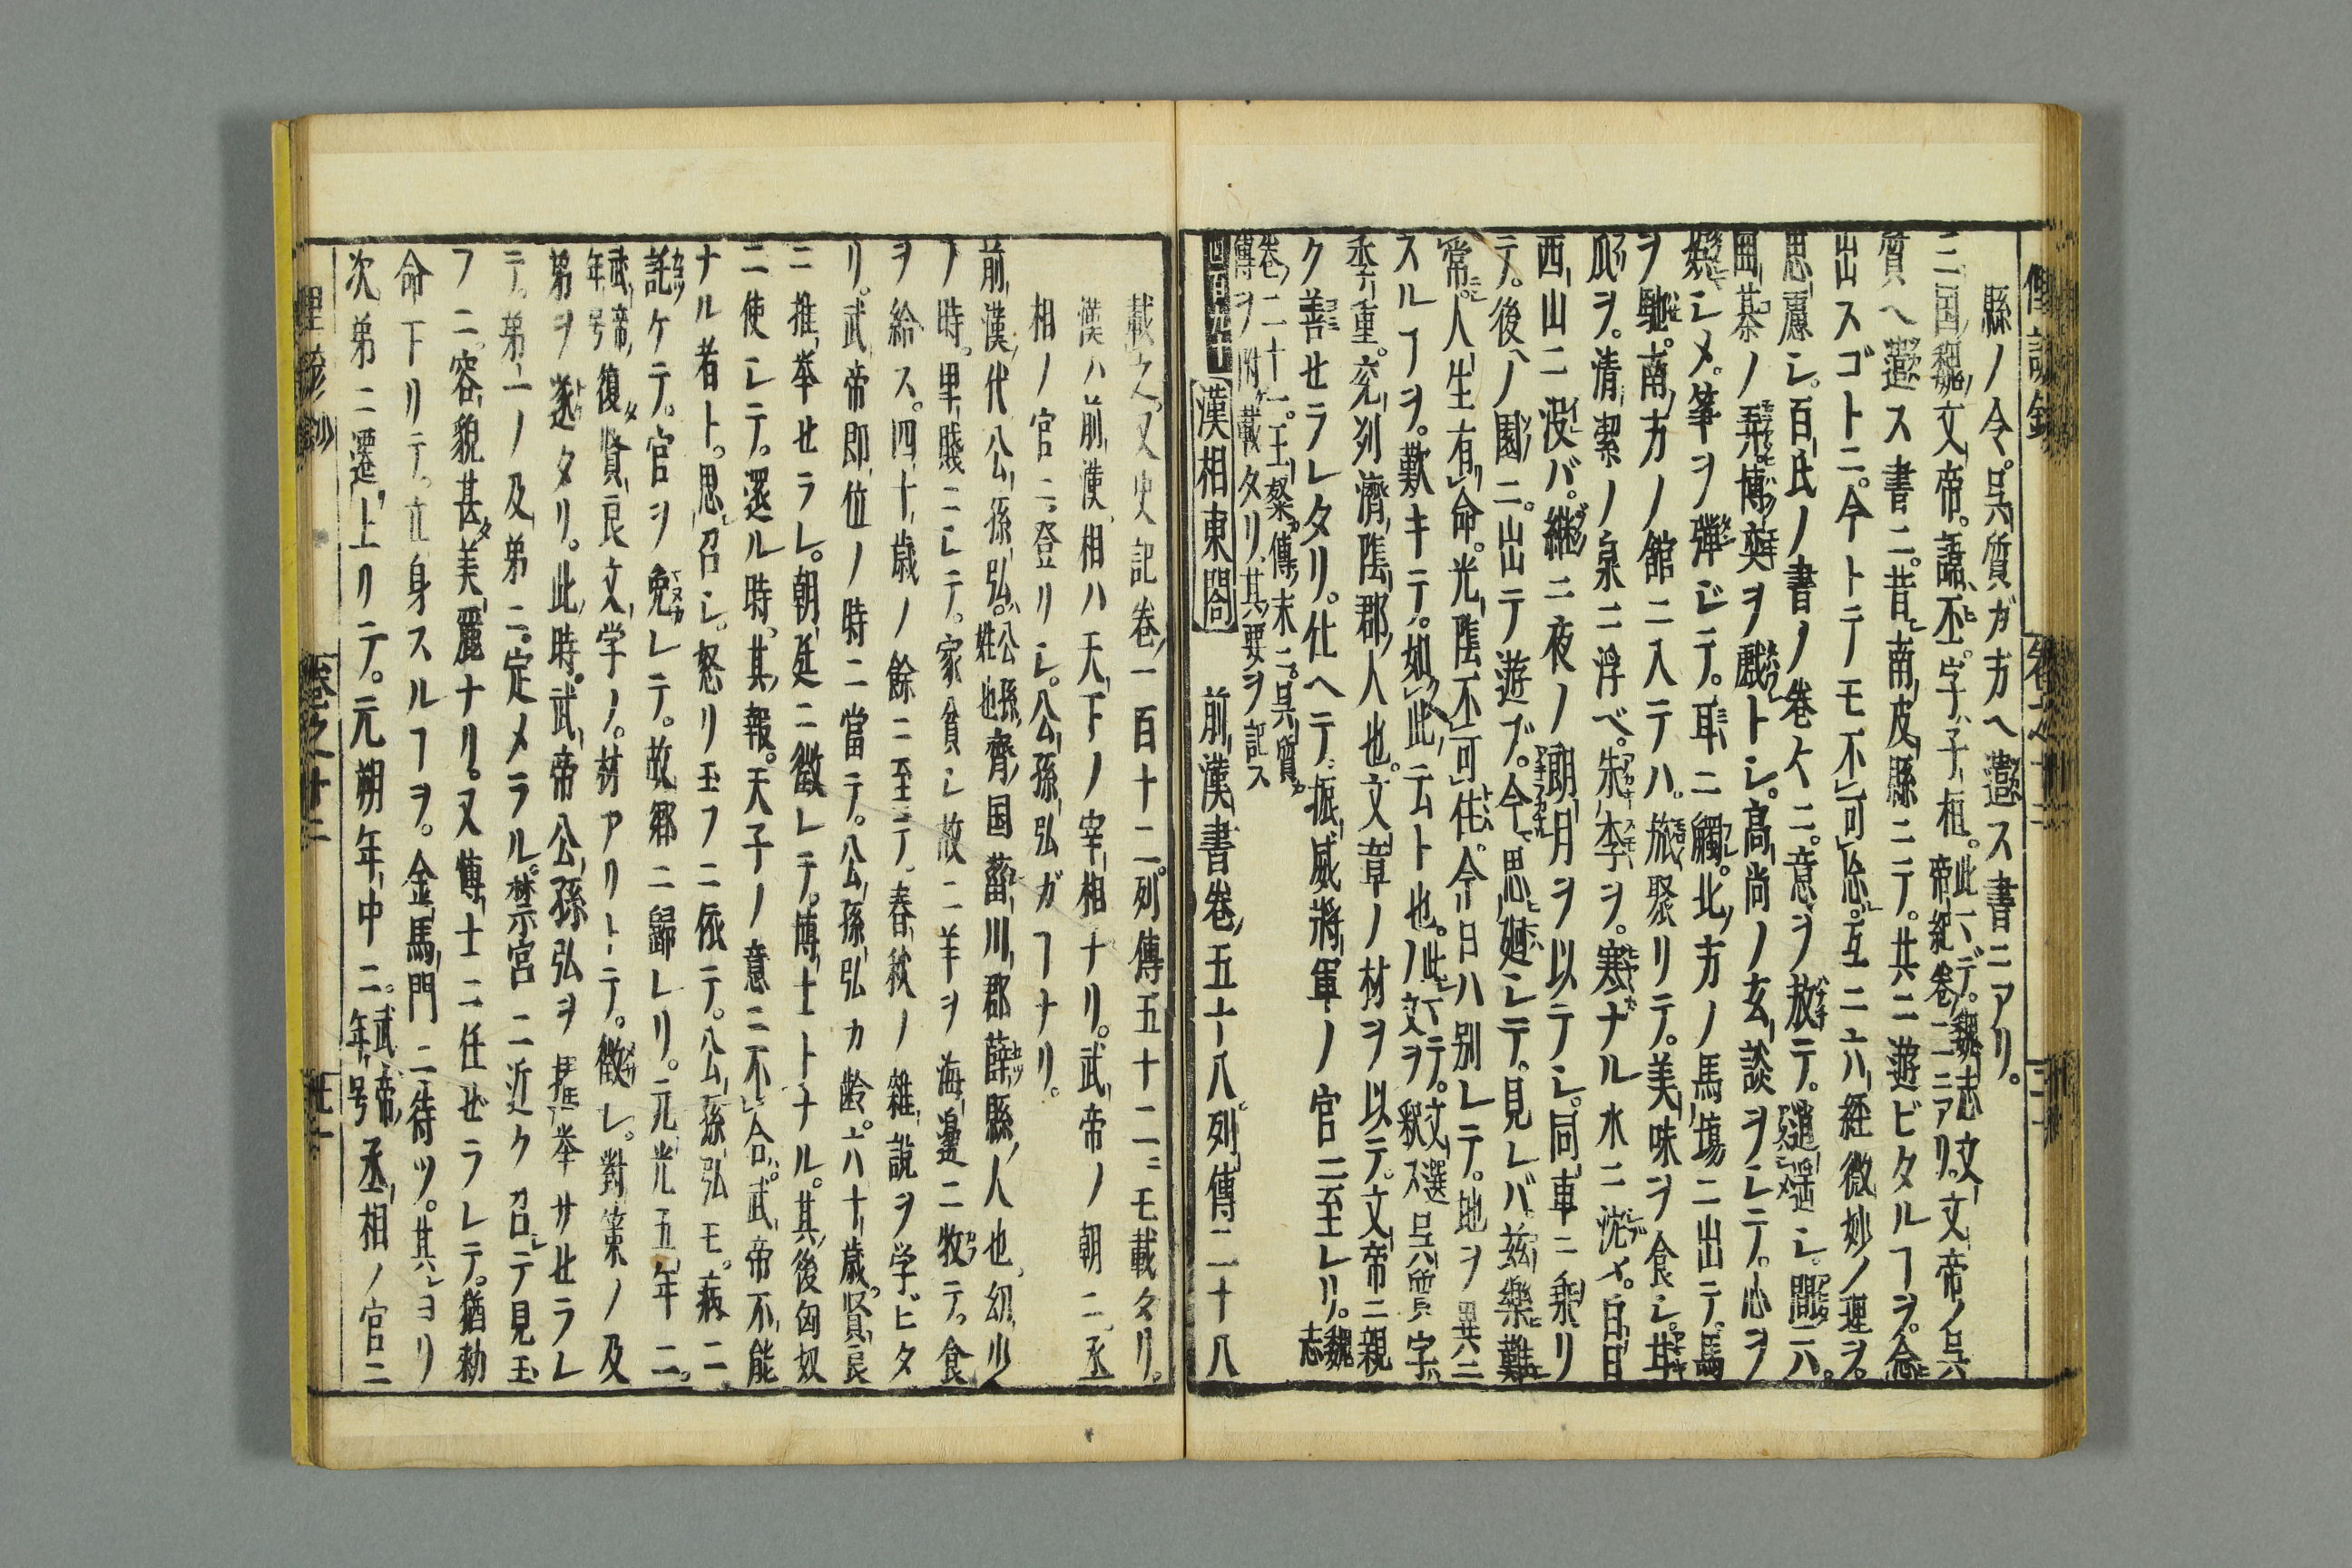 縣ノ令。呉質ガ方ヘ遣ス書ニアリ。
三国魏文帝。諱ハ丕。字ハ子桓。此一デ。魏志文帝紀巻二ニアリ。文帝ノ呉
質ヘ遣ス書ニ。昔南皮縣ニテ。共ニ遊ビタルヿヲ。念
出スゴトニ。今トテモ不可忘。互ニ六経微妙ノ理ヲ。
思慮シ。百氏ノ書ノ巻〻ニ。意ヲ放テ。逍遥シ。間ニハ。
囲棊ノ弄。博奕ヲ戯トシ。高尚ノ玄談ヲシテ。心ヲ
娯シメ。筝ヲ弾ジテ。耳ニ觸。北方ノ馬塲ニ出テ。馬
ヲ馳。南方ノ館ニ入テハ。旅聚リテ。美味ヲ食シ。甘
瓜ヲ。清潔ノ泉ニ浮ベ。朱李ヲ。寒ナル水ニ沈メ。白日
西山ニ没バ。継ニ夜ノ朗月ヲ以テシ。同車ニ乗リ
テ。後ノ園ニ。出テ遊ブ。今思廻シテ。見レバ。茲樂難
常。人生有命。光陰不可住。今日ハ別レテ。地ヲ異ニ
スルヿヲ。歎キテ。如此云ト也。此一デ。文選ノ文ヲ釈ス呉質字ハ
季重。兖州濟陰郡人也。文章ノ材ヲ以テ。文帝ニ親
ク善セラレタリ。仕ヘテ振威將軍ノ官ニ至レリ。魏志
巻二十一。王粲傳末ニ。呉質傳ヲ附載タリ。其要ヲ記ス
漢相東閤 前漢書巻五十八。列傳二十八
載之。又史記巻一百十二。列傳五十二ニモ載タリ。
漢ハ前漢。相ハ天下ノ宰相ナリ。武帝ノ朝ニ。丞
相ノ官ニ。登リシ。公孫弘ガヿナリ。
前漢代公孫弘。公孫ハ姓也齊国菑川郡薛縣人也。幼少
ノ時。里賤ニシテ。家貧シ故ニ羊ヲ海邊ニ牧テ。食
ヲ給ス。四十歳ノ餘ニ至テ。春秋ノ雜説ヲ学ビタ
リ。武帝即位ノ時ニ當テ。公孫弘カ齢。六十歳。賢良
ニ推挙セラレ。朝廷ニ徴レテ。博士トナル。其後匈奴
ニ使シテ。還ル時。其報。天子ノ意ニ不合。武帝不能
ナル者ト。思召シ。怒リ玉フニ依テ。公孫弘モ。病ニ
託ケテ。官ヲ免レテ。故郷ニ歸レリ。元光五年ニ。
武帝年号復賢良文学ノ。材アリトテ。徴レ。對策ノ及
第ヲ遂タリ。此時。武帝公孫弘ヲ擢挙サセラレ
テ。第一ノ及第ニ。定メラル。禁宮ニ近ク召テ見玉
フニ。容貌甚美麗ナリ。又博士ニ任ゼラレテ。猶勅
命下リテ。立身スルヿヲ。金馬門ニ待ツ。其ヨリ
次第ニ遷上リテ。元朔年中ニ。武帝年号丞相ノ官ニ
巻之廿二